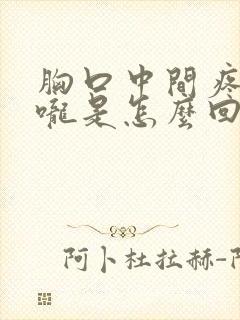 胸口中間疼
嚨是怎麼回
阿卜杜拉赫-阿